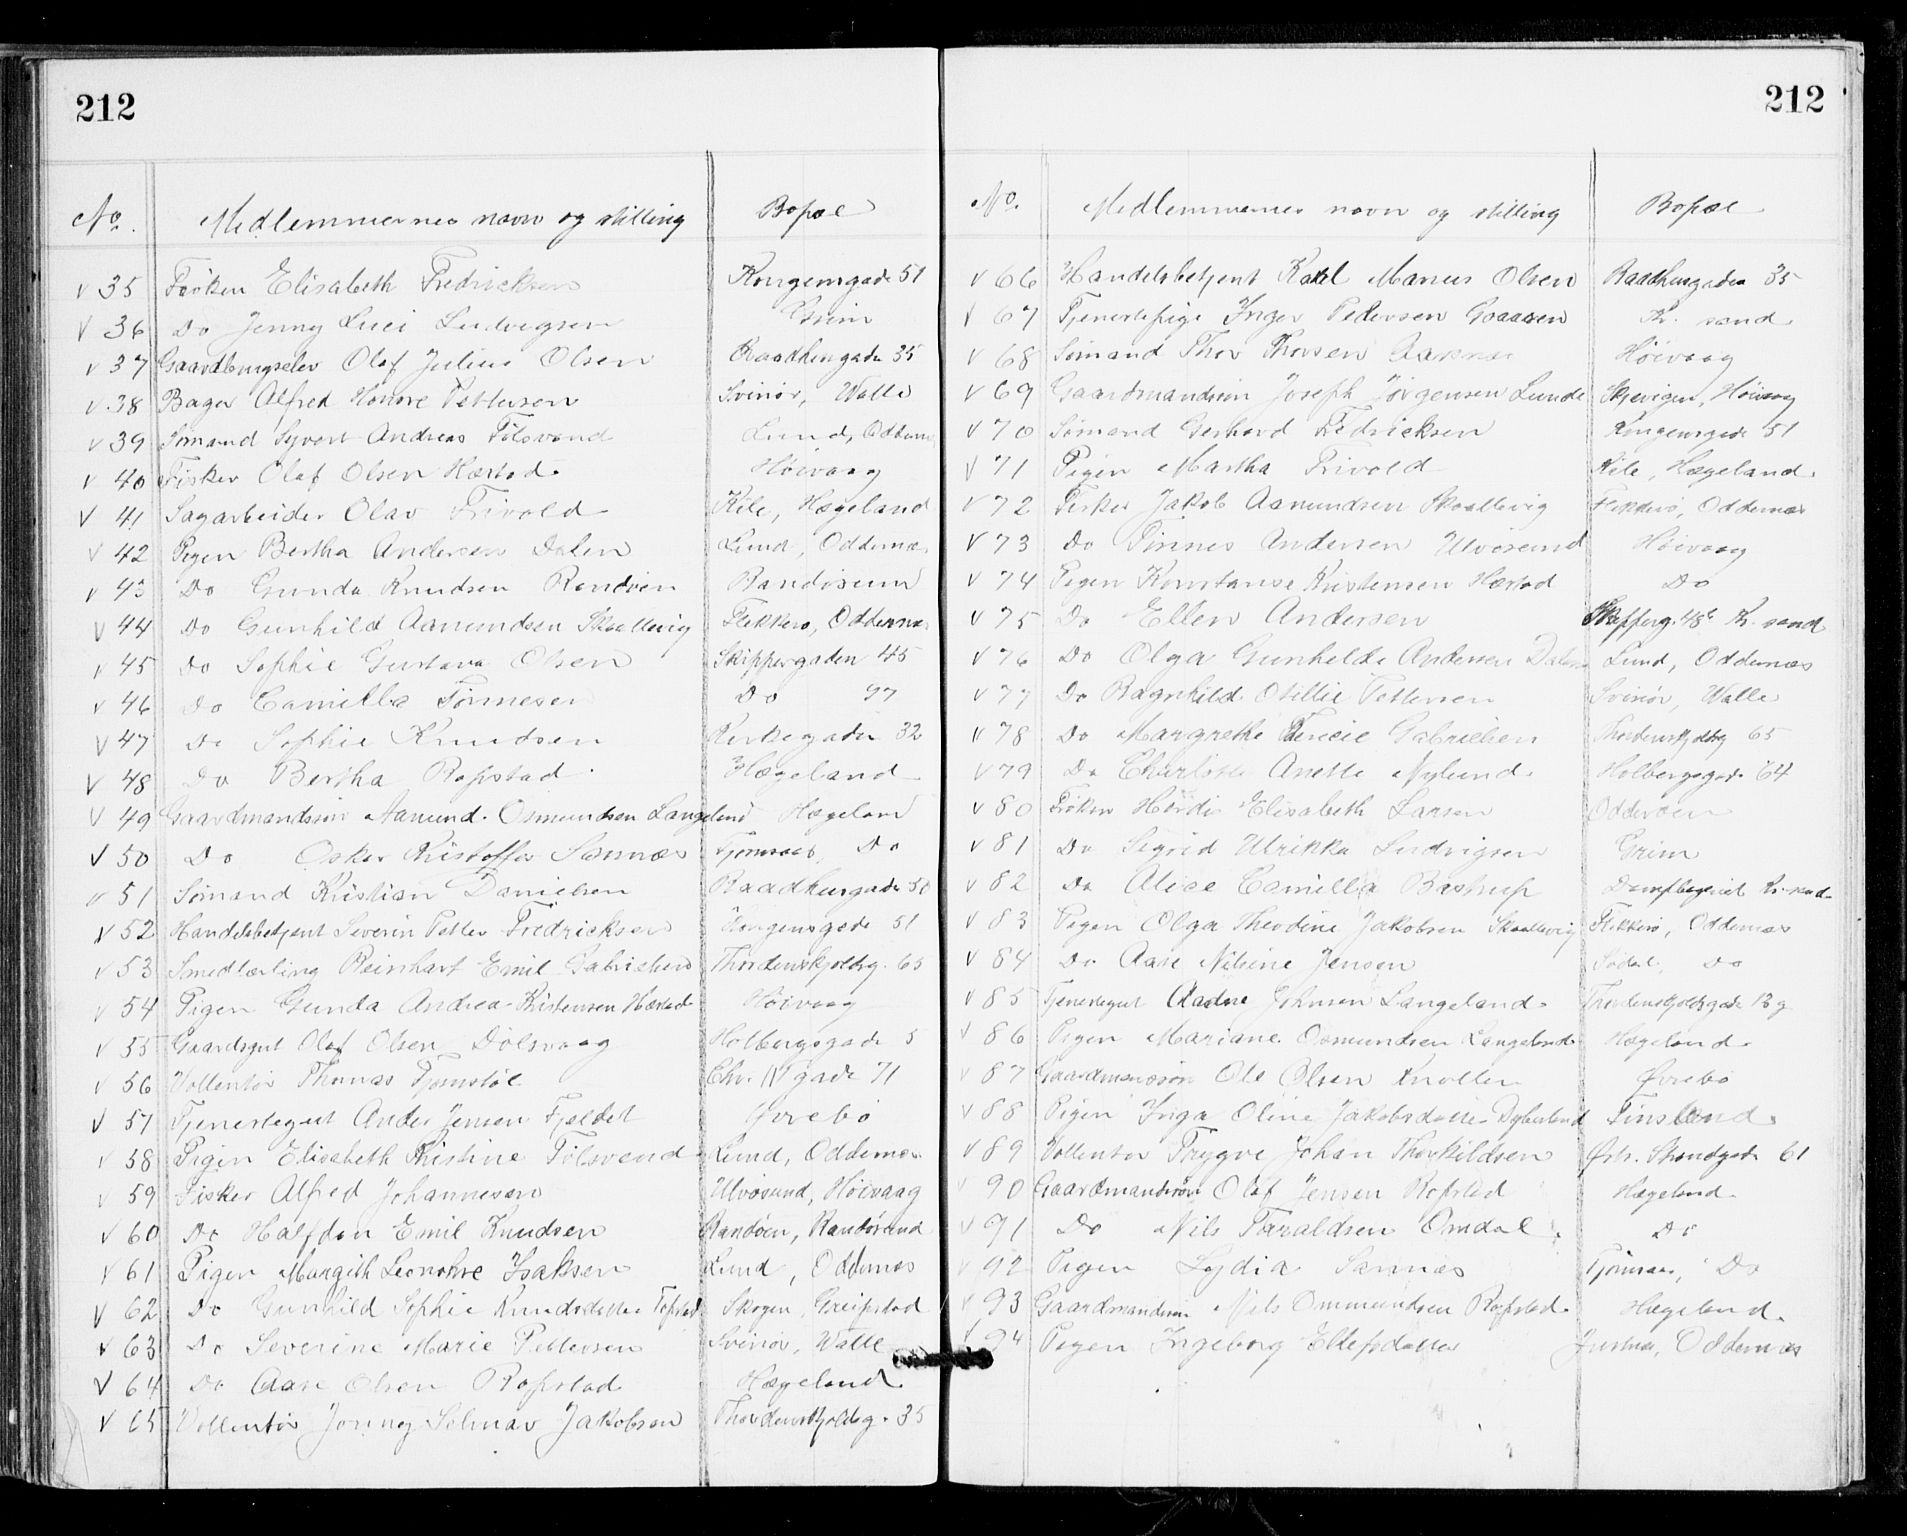 212
No. Medlemmernes navn og stilling Bopæl
v 35 Frøken Elisabeth Fredricksen Kongensgade 51
v 36 Do Jenny Luci Ludvigsen Grim
v 37 Olaf Julius Olsen Raadhusgade 35
v 38 Bager Alfred Honore Pettersen Svinør, Valle
v 39 Sømand Syvert Andreas Følsvand Lund, Oddernes
v 40 Fisker Olaf Olsen Hæstad Høivaag
v 41 Sagarbeider Olav Frivold Kile, Hægeland
v 42 Pigen Bertha Andersen Dalen Lund, Oddernæs
v 43 Do Gunda Knudsen Randøen Randøsund
v 44 Do Gunhild Aanundsen Skaallevig Flekkerø, Oddernæs
v 45 Do Sophie Gustava Olsen Skippergaden 45
v 46 Do Camilla Tønnesen Do 97
v 47 Do Sophie Knudsen Kirkegaden 32
v 48 Do Bertha Ropstad Hægeland
v 49 Gaardmandssøn Aanund Osmundsen Langeland Hægeland
v 50 Do Oskar Kristoffer Sannæs Tjomsaas, Do
v 51 Sømand Kristian Danielsen Raadhusgade 50
v 52 Handelsbetjent Severin Petter Fredricksen Kongensgade 51
v 53 Smedlærling Reinhart Emil Gabrielsen Thordenskjoldsg. 65
v 54 Pigen Gunda Andrea Kristensen Hæstad Høivaag
v 55 Gaardsgut Olaf Olsen Dølsvaag Holbergsgade 5
v 56 Vollentør Thomas Tjomstøl Chr. IV gade 71
v 57 Tjenestegut Anders Jensen Fjeldet Øvrebø
v 58 Pigen Elisabeth Kristine Følsvand Lund, Oddernæs
v 59 Fisker Alfred Johannesen Ulvøsund, Høivaag
v 60 Do Halfdan Emil Knudsen Randøen, Randøsund
v 61 Pigen Margith Leonohre Isaksen Lund, Oddernæs
v 62 Do Gunhild Sophie Knudsdatter Topstad Skogen, Greipstad
v 63 Do Severine Marie Pettersen Svinør, Valle
v 64 Do Aase Olsen Ropstad Hægeland
v 65 Vollentør Jonny Selmar Jakobsen Thordenskjoldsg. 35
212
No. Medlemmernes navn og stilling Bopæl
v 66 Handelsbetjent Karl Marius Olsen Raadhusgaden 35
v 67 Tjenestepige Inger Pedersen Kr. sand
v 68 Sømand Thor Thorsen Aasnæs Høivaag
v 69 Gaardmandssøn Joseph Jørgensen Lunde Skjevigen, Høivaag
v 70 Sømand Gerhard Fredricksen Kongensgade 51
v 71 Pigen Martha Frivold Kile, Hægeland
v 72 Fisker Jakob Aanundsen Skaallevig Flekkerø, Oddernæs
v 73 Do Tønnes Andersen Ulvøsund Høivaag
v 74 Pigen Konstanse Kristensen Hæstad Do
v 75 Do Ellen Andersen Skipperg. 48c Kr. sand
v 76 Do Olga Gunhilde Andersen Dalen Lund, Oddernæs
v 77 Do Ragnhild Otillie Pettersen Svinør, Valle
v 78 Do Margrethe Gabrielsen Thordenskjoldsg 65
v 79 Do Charlotte Anette Nylund Holbergsgade 64
v 80 Frøken Hjørdis Elisabeth Larsen Odderøen
v 81 Do Sigrid Ulrikka Ludvigsen Grim
v 82 Do Alice Camilla Bastrup Dampbageriet Kr. sand
v 83 Pigen Olga Theodine Jakobsen Skaallevig Flekkerø, Oddernæs
v 84 Do Aase Nilsine Jensen Sødal, Do
v 85 Tjenestegut Aadne Johnsen Langeland Thordenskjoldsgade 13 g
v 86 Pigen Mariane Osmundsen Langeland Hægeland
v 87 Gaardmandssøn Ole Olsen Knotten Øvrebø
v 88 Pigen Inga Oline Jakobsdatter Dybesland Finsland
v 89 Vollentør Trygve Johan Thorkildsen Østr. Strandgade 61
v 90 Gaardmandssøn Olaf Jensen Ropstad Hægeland
v 91 Do Nils Taraldsen Omdal Do
v 92 Pigen Lydia Sannæs Tjomsaas, Do
v 93 Gaardmandssøn Nils Ommundsen Ropstad Hægeland
v 94 Pigen Ingeborg Ellefsdatter Justnes, Oddernæs